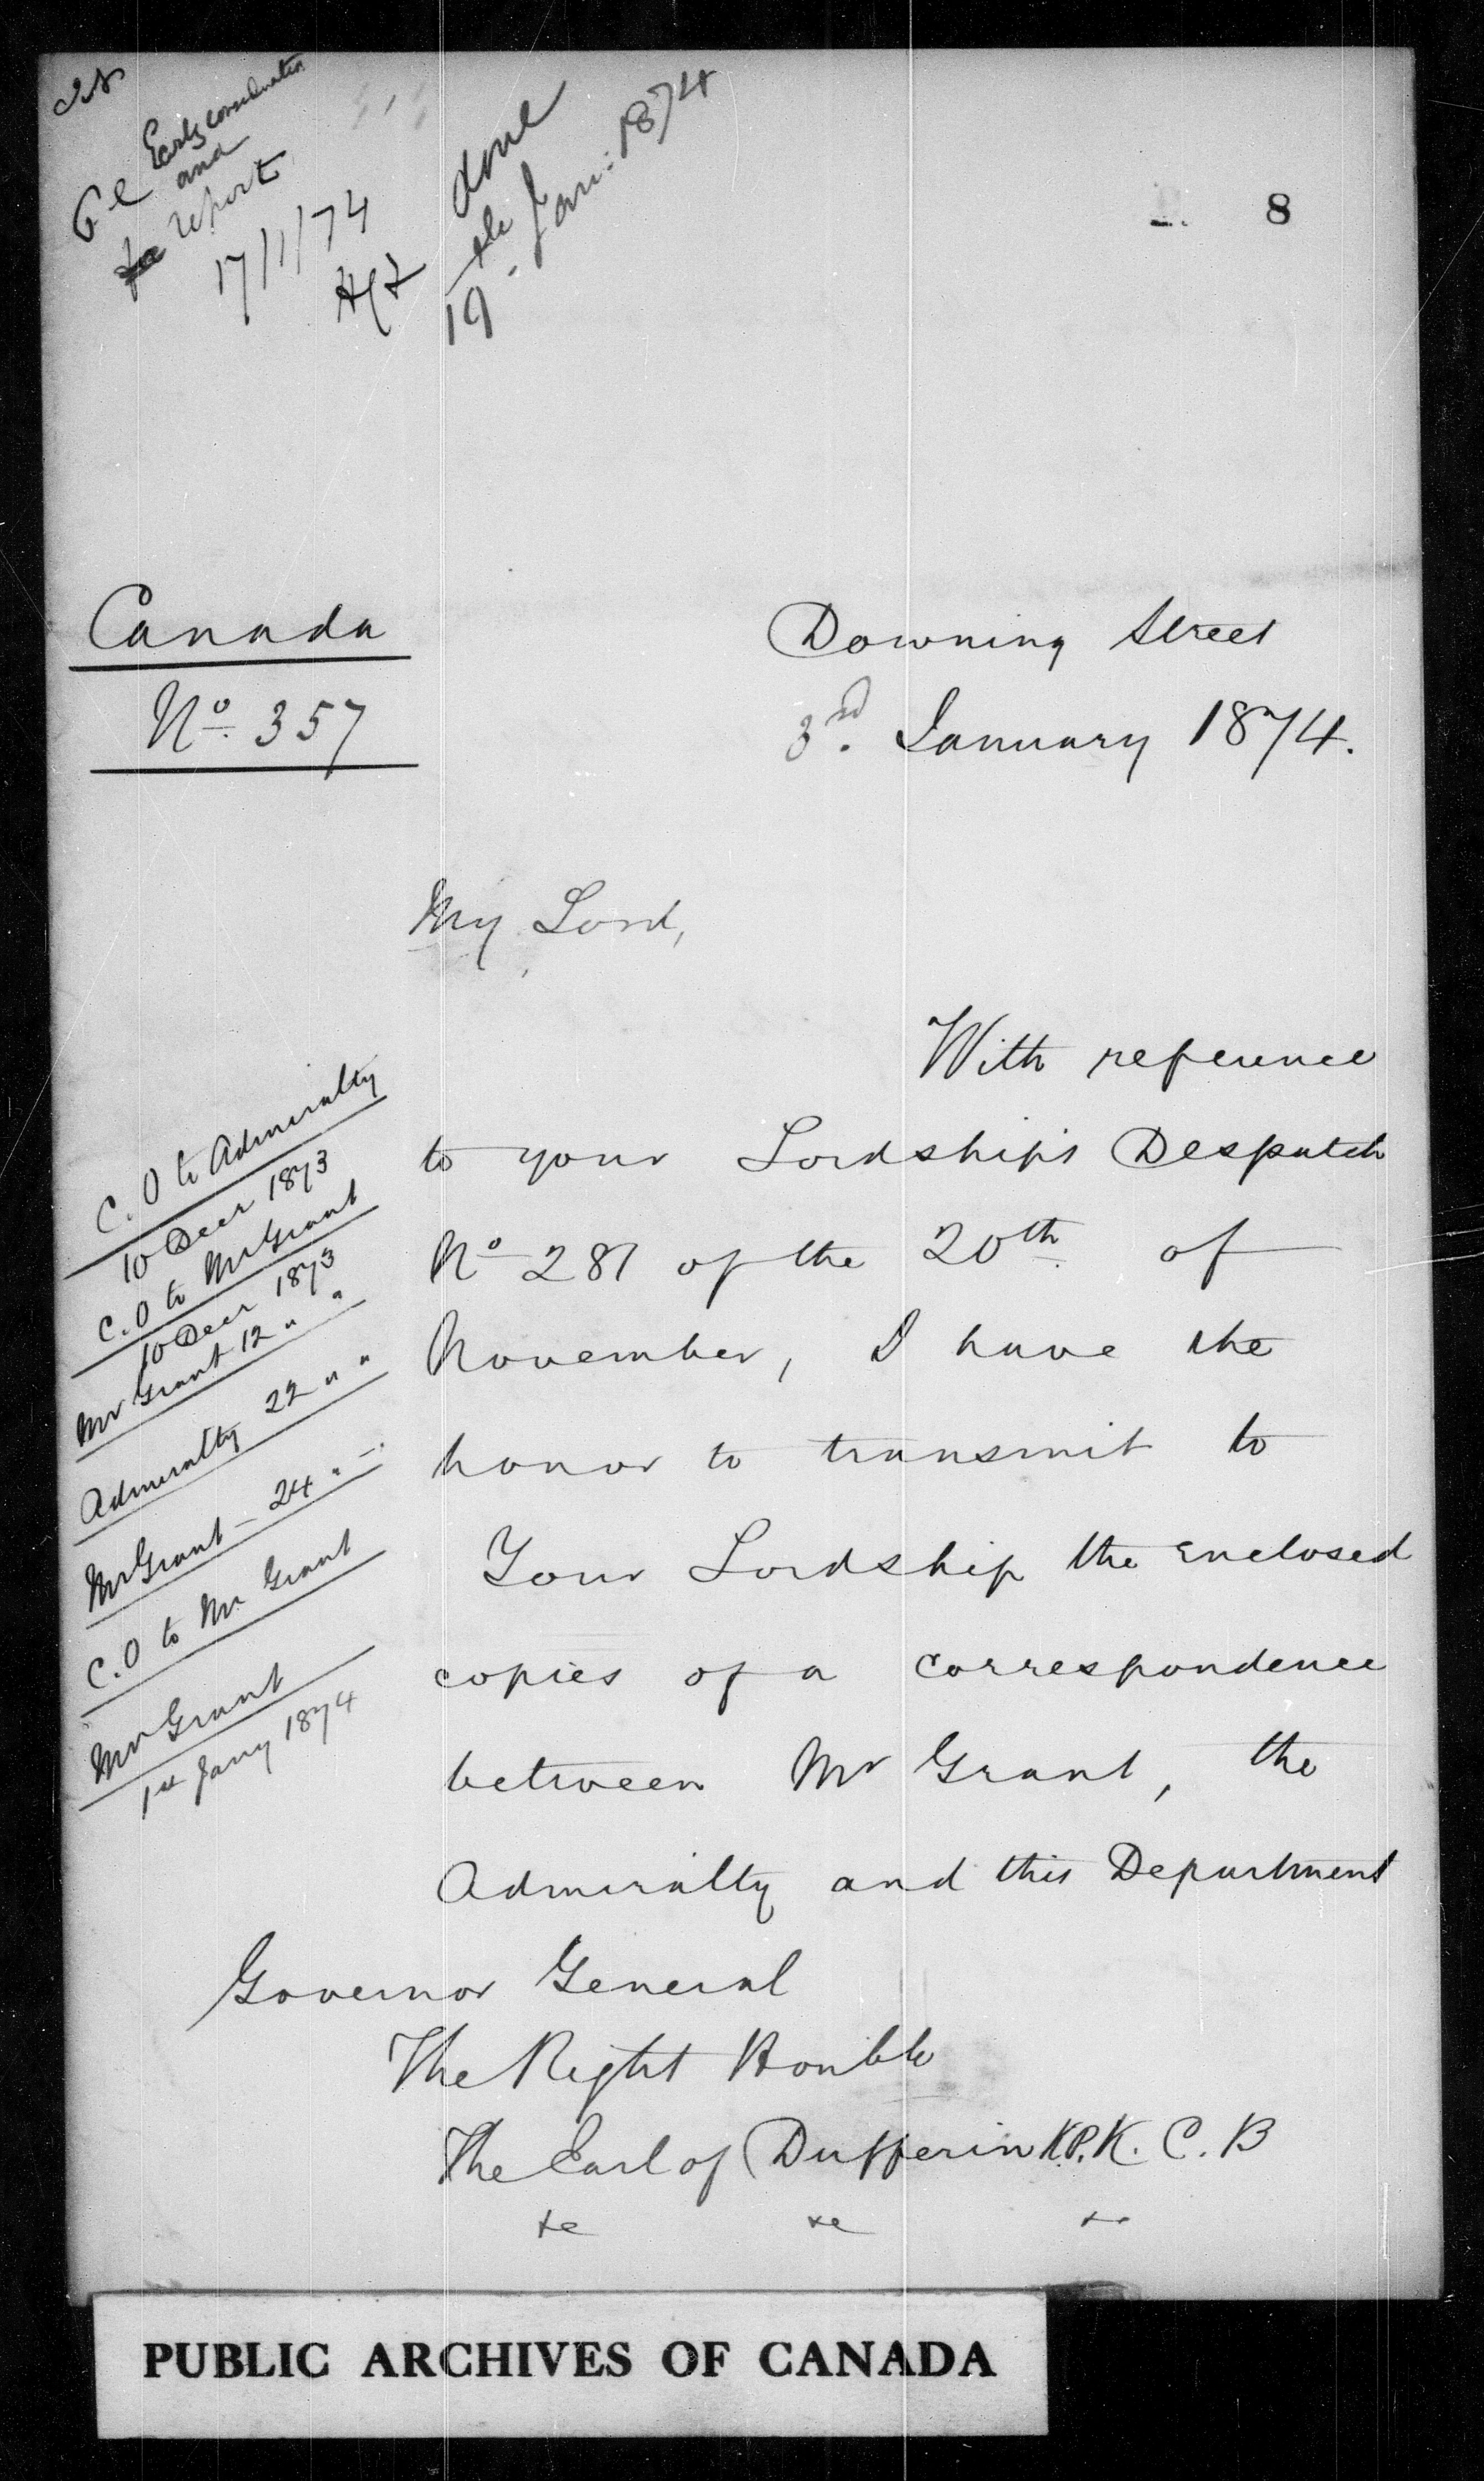 Early consideration
and
report
17/1/74
done
19 Jan: 1874
8
Canada
No. 357
Downing Street
3rd. January 1874.
My Lord,
With reference
to your Lordship's Despatch
No 281 of the 20th. of
November, I have the
honor to transmit to
Your Lordship the enclosed
copies of a correspondence
between Mr Grant, the
Admiralty and this Department
C.O to Admiralty
10 Decr 1873
C.O to Mr Grant
10 Decr 1873
Mr Grant 12 " "
Admiralty 22 " "
Mr Grant – 24 " –
C.O to Mr Grant
Mr Grant
1st Jany 1874
Governor General
The Right Honble
The Earl of Dufferin K.P. K. C. B
&c &c &c
PUBLIC ARCHIVES OF CANADA